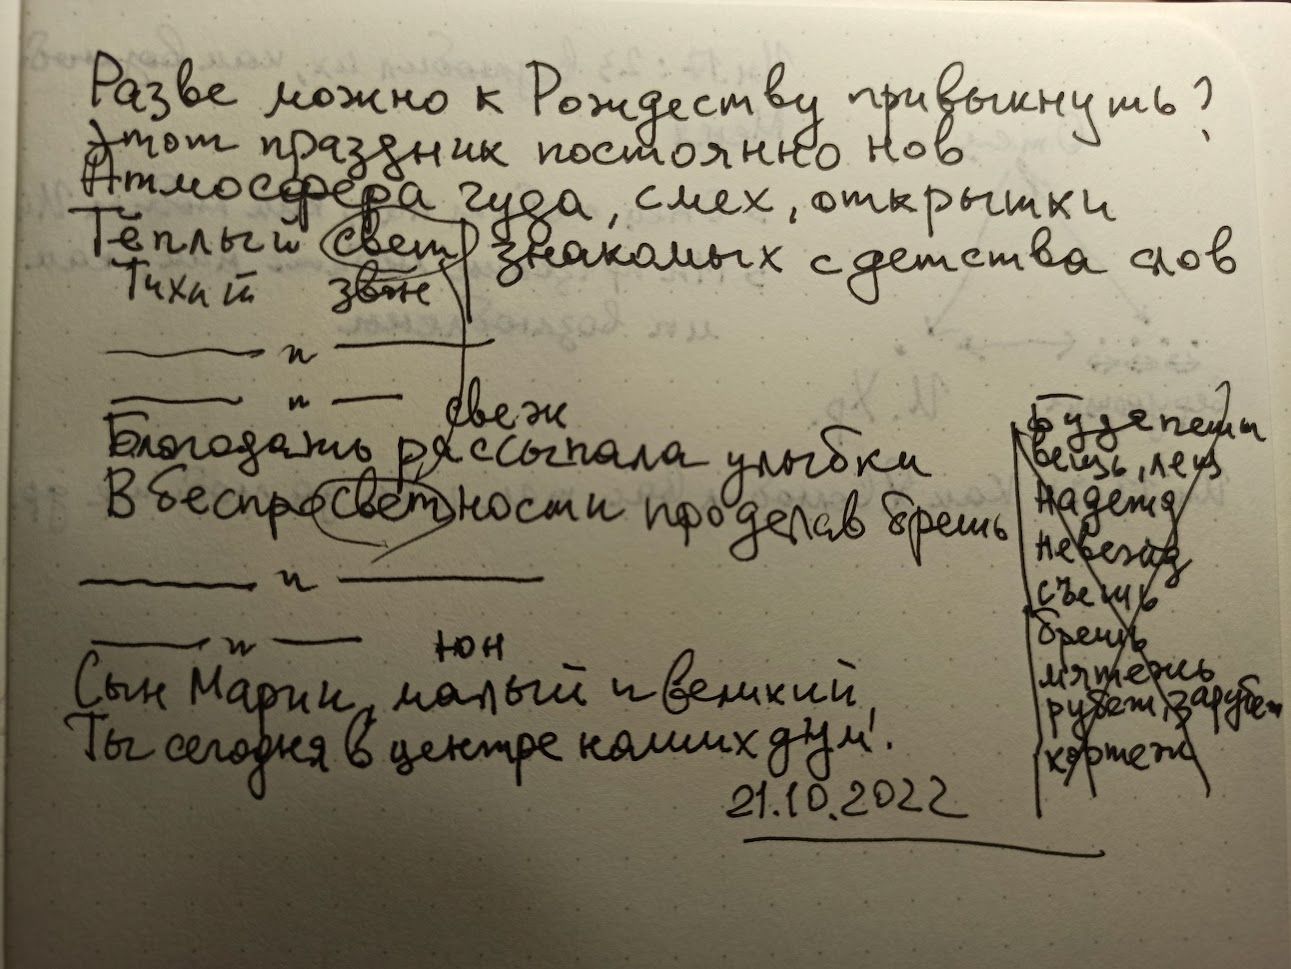 Разве можно к Рождеству привыкнуть?
Этот праздник постоянно нов
Атмосфера чуда, смех, открытки
Тёплый свет знакомых с детства слов
Тихий звон
— и —
— и —
свеж
Благодать рассыпала улыбки
В беспросветности проделав брешь
— и —
— и —
юн
Сын Марии, малый и великий,
Ты сегодня в центре наших дум!
21.10.2022
Будапешт
вещь, лещ
надежд
невежд
съешь
брешь
мятежь
рубеж, зарубеж
кортеж